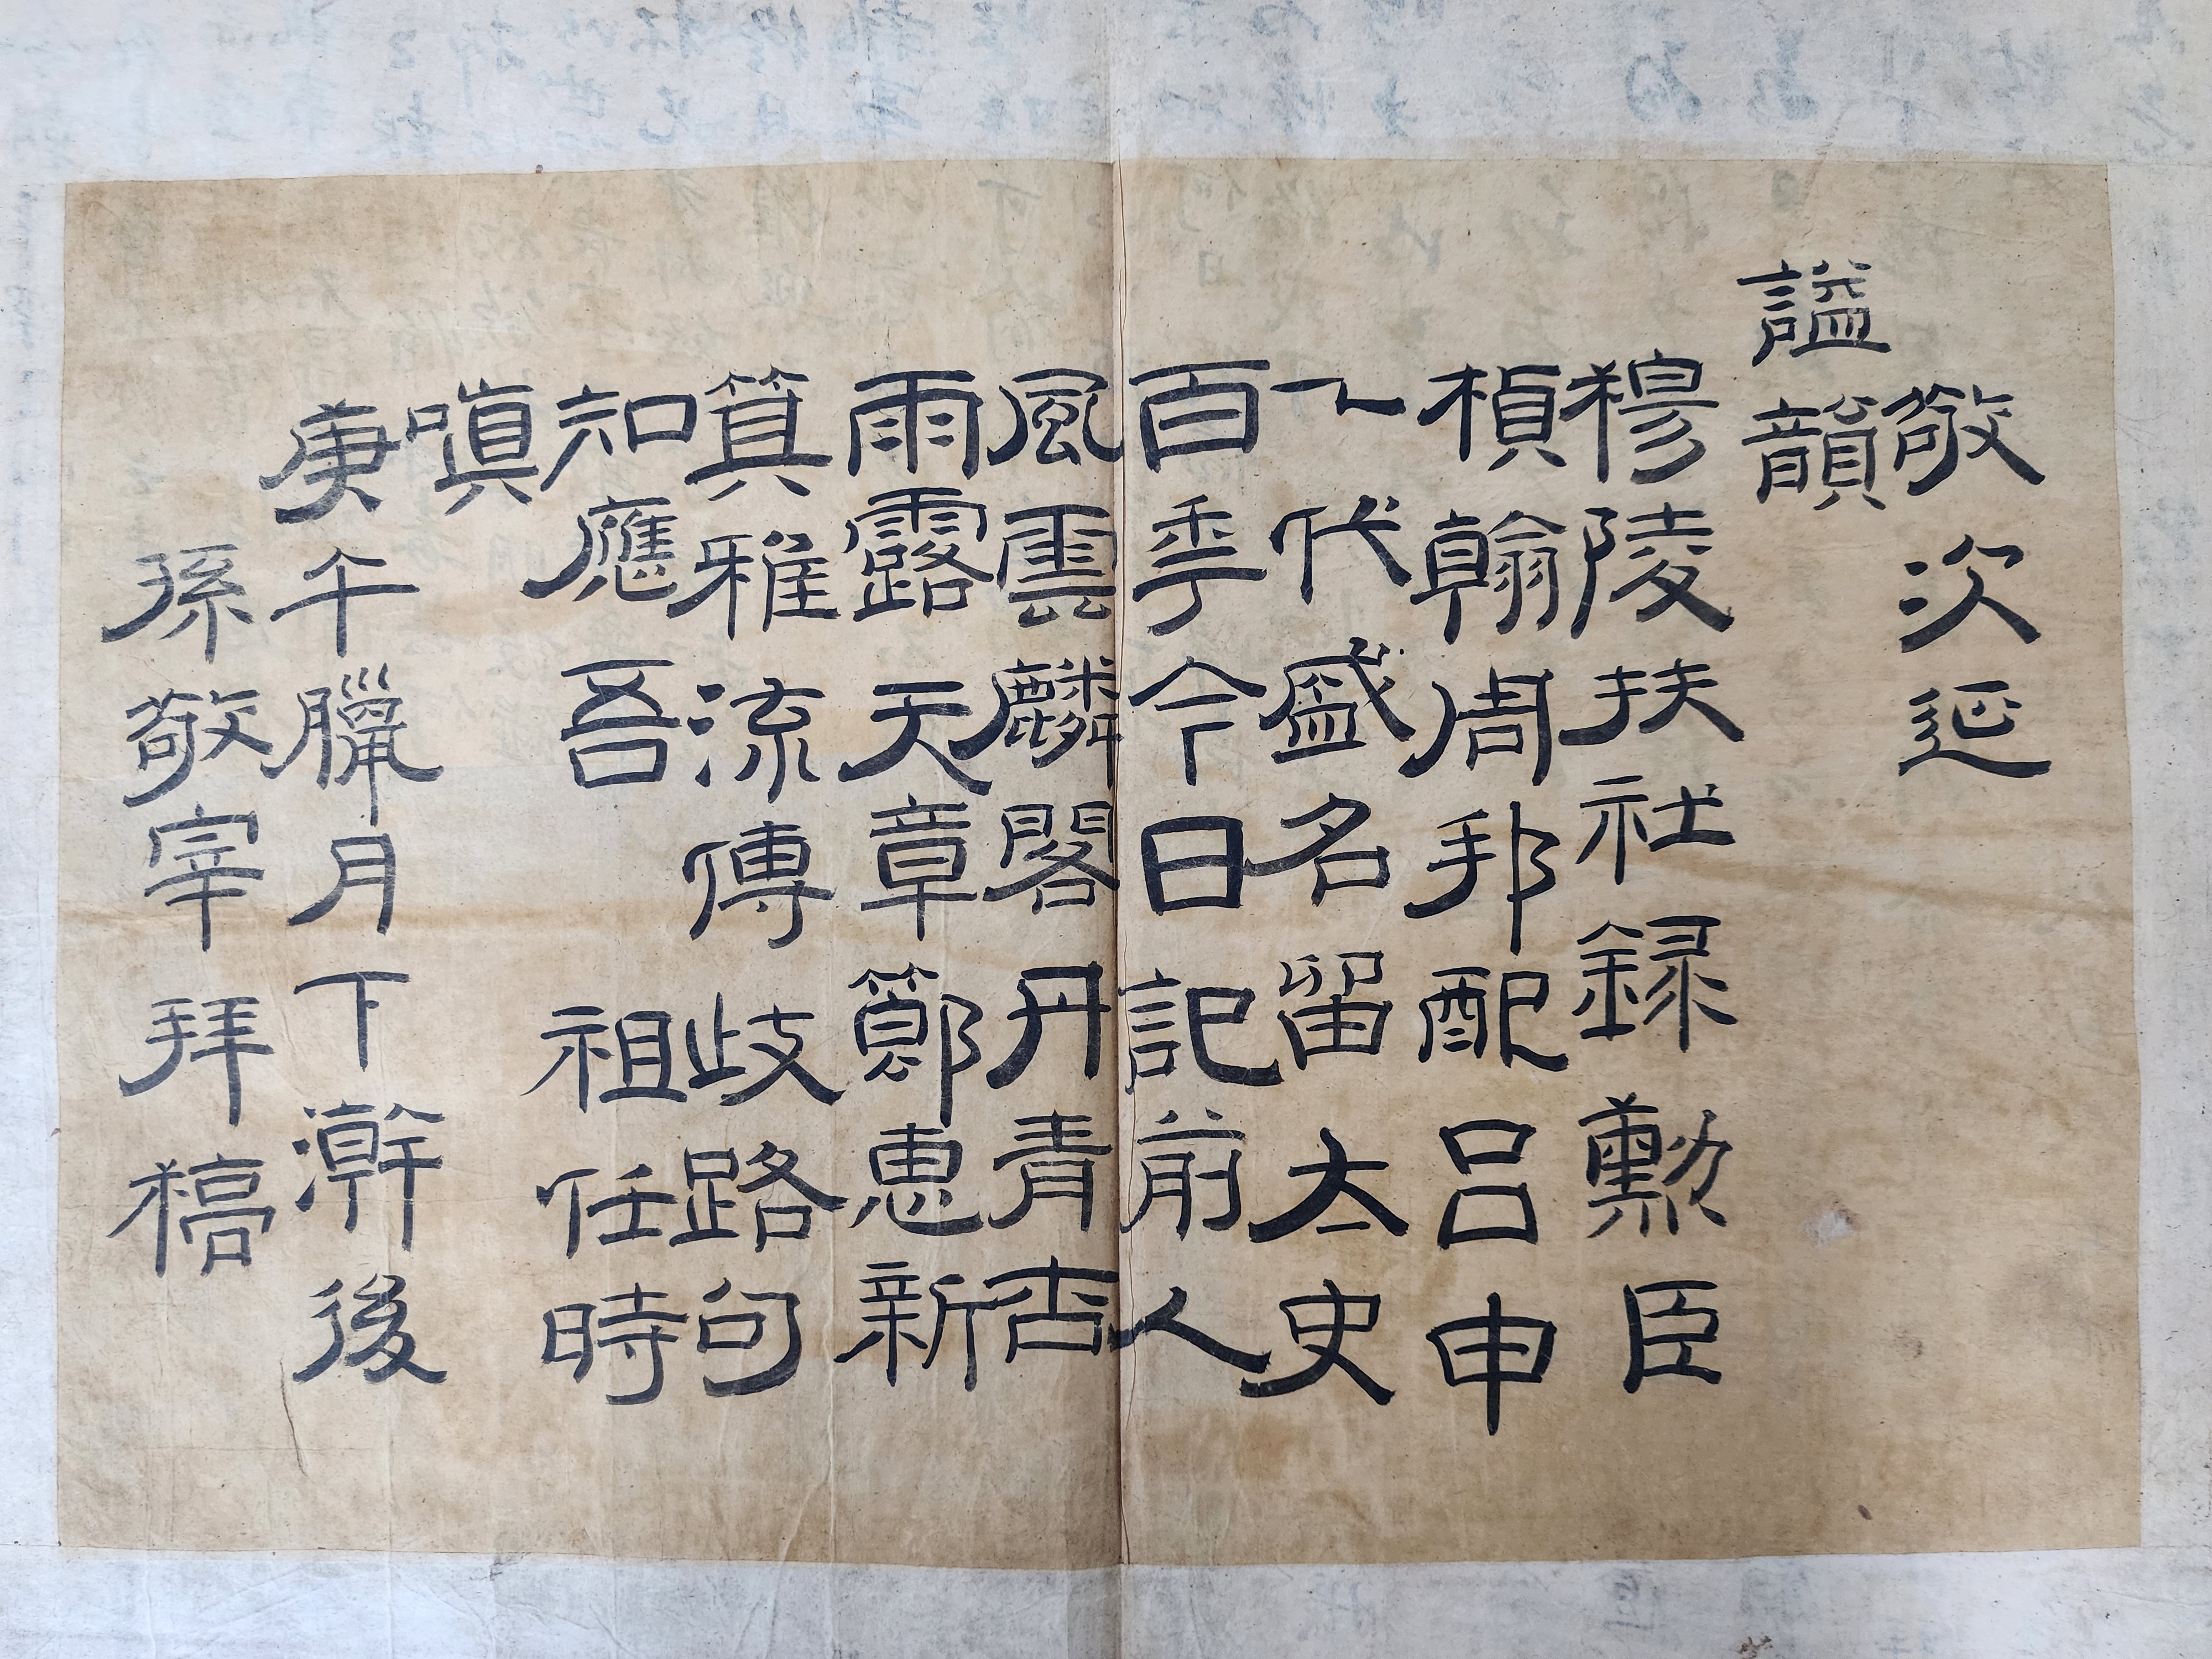 敬次延
諡韻
楊陵扶社録勲臣
楨翰周邦配呂申
一代盛名留太史
百年今日記前人
風雲麟閣丹青古
雨露天章節惠新
箕雅流傳歧路句
知應吾祖任時
嗔
庚午臘月下澣後
孫敬宰拜稿